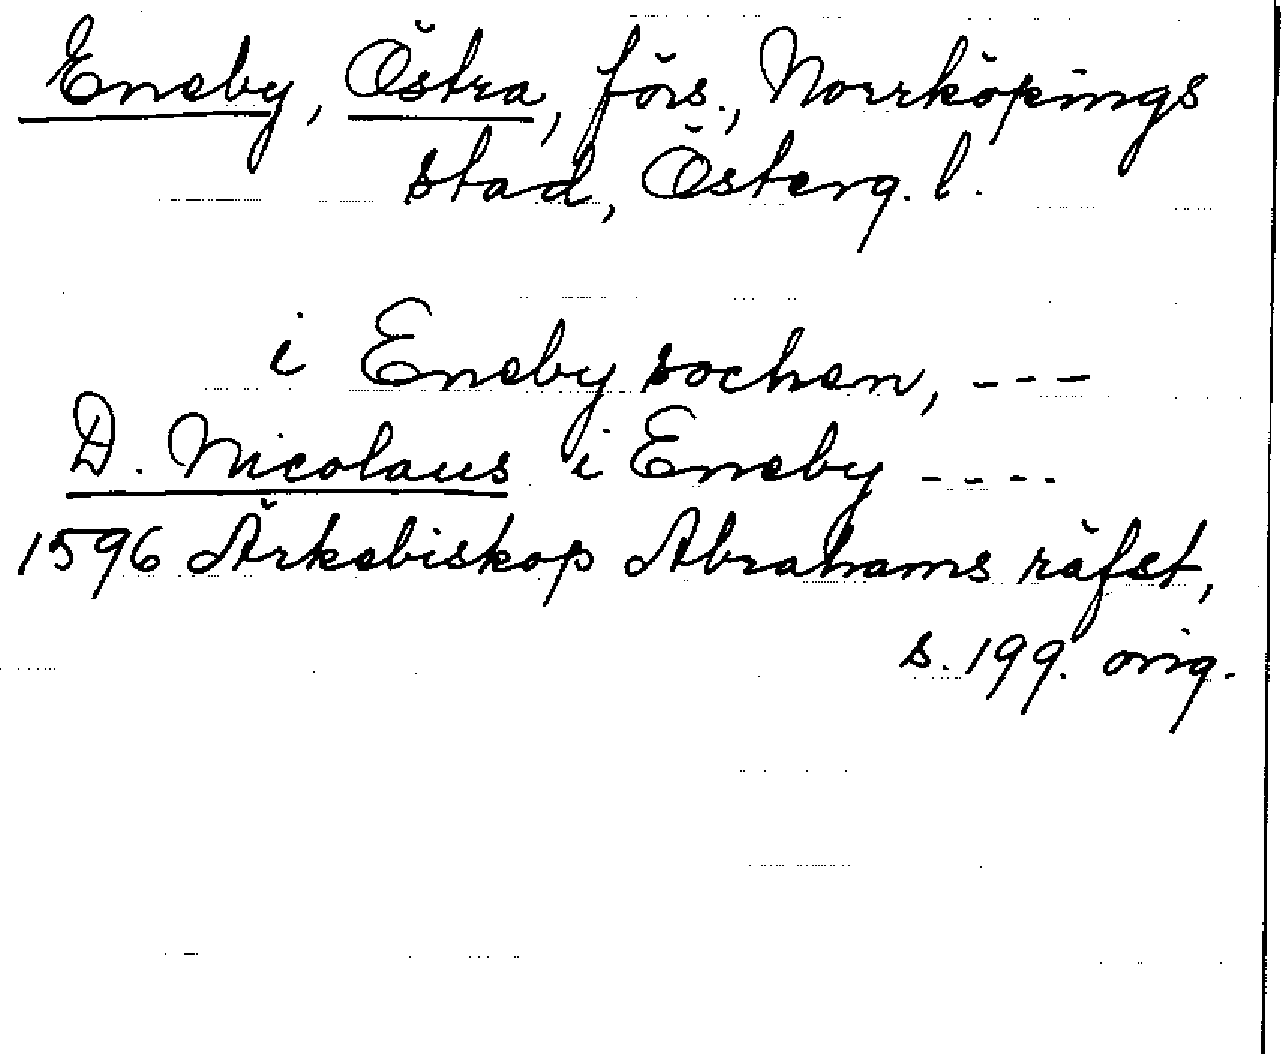 Eneby, Östra, förs., Norrköpings
stad, Österg. l.
i Eneby sochen, - - -
D. Nicolaus i Eneby - - - -
1596 Ärkebiskop Abrahams räfst,
s. 199. orig.